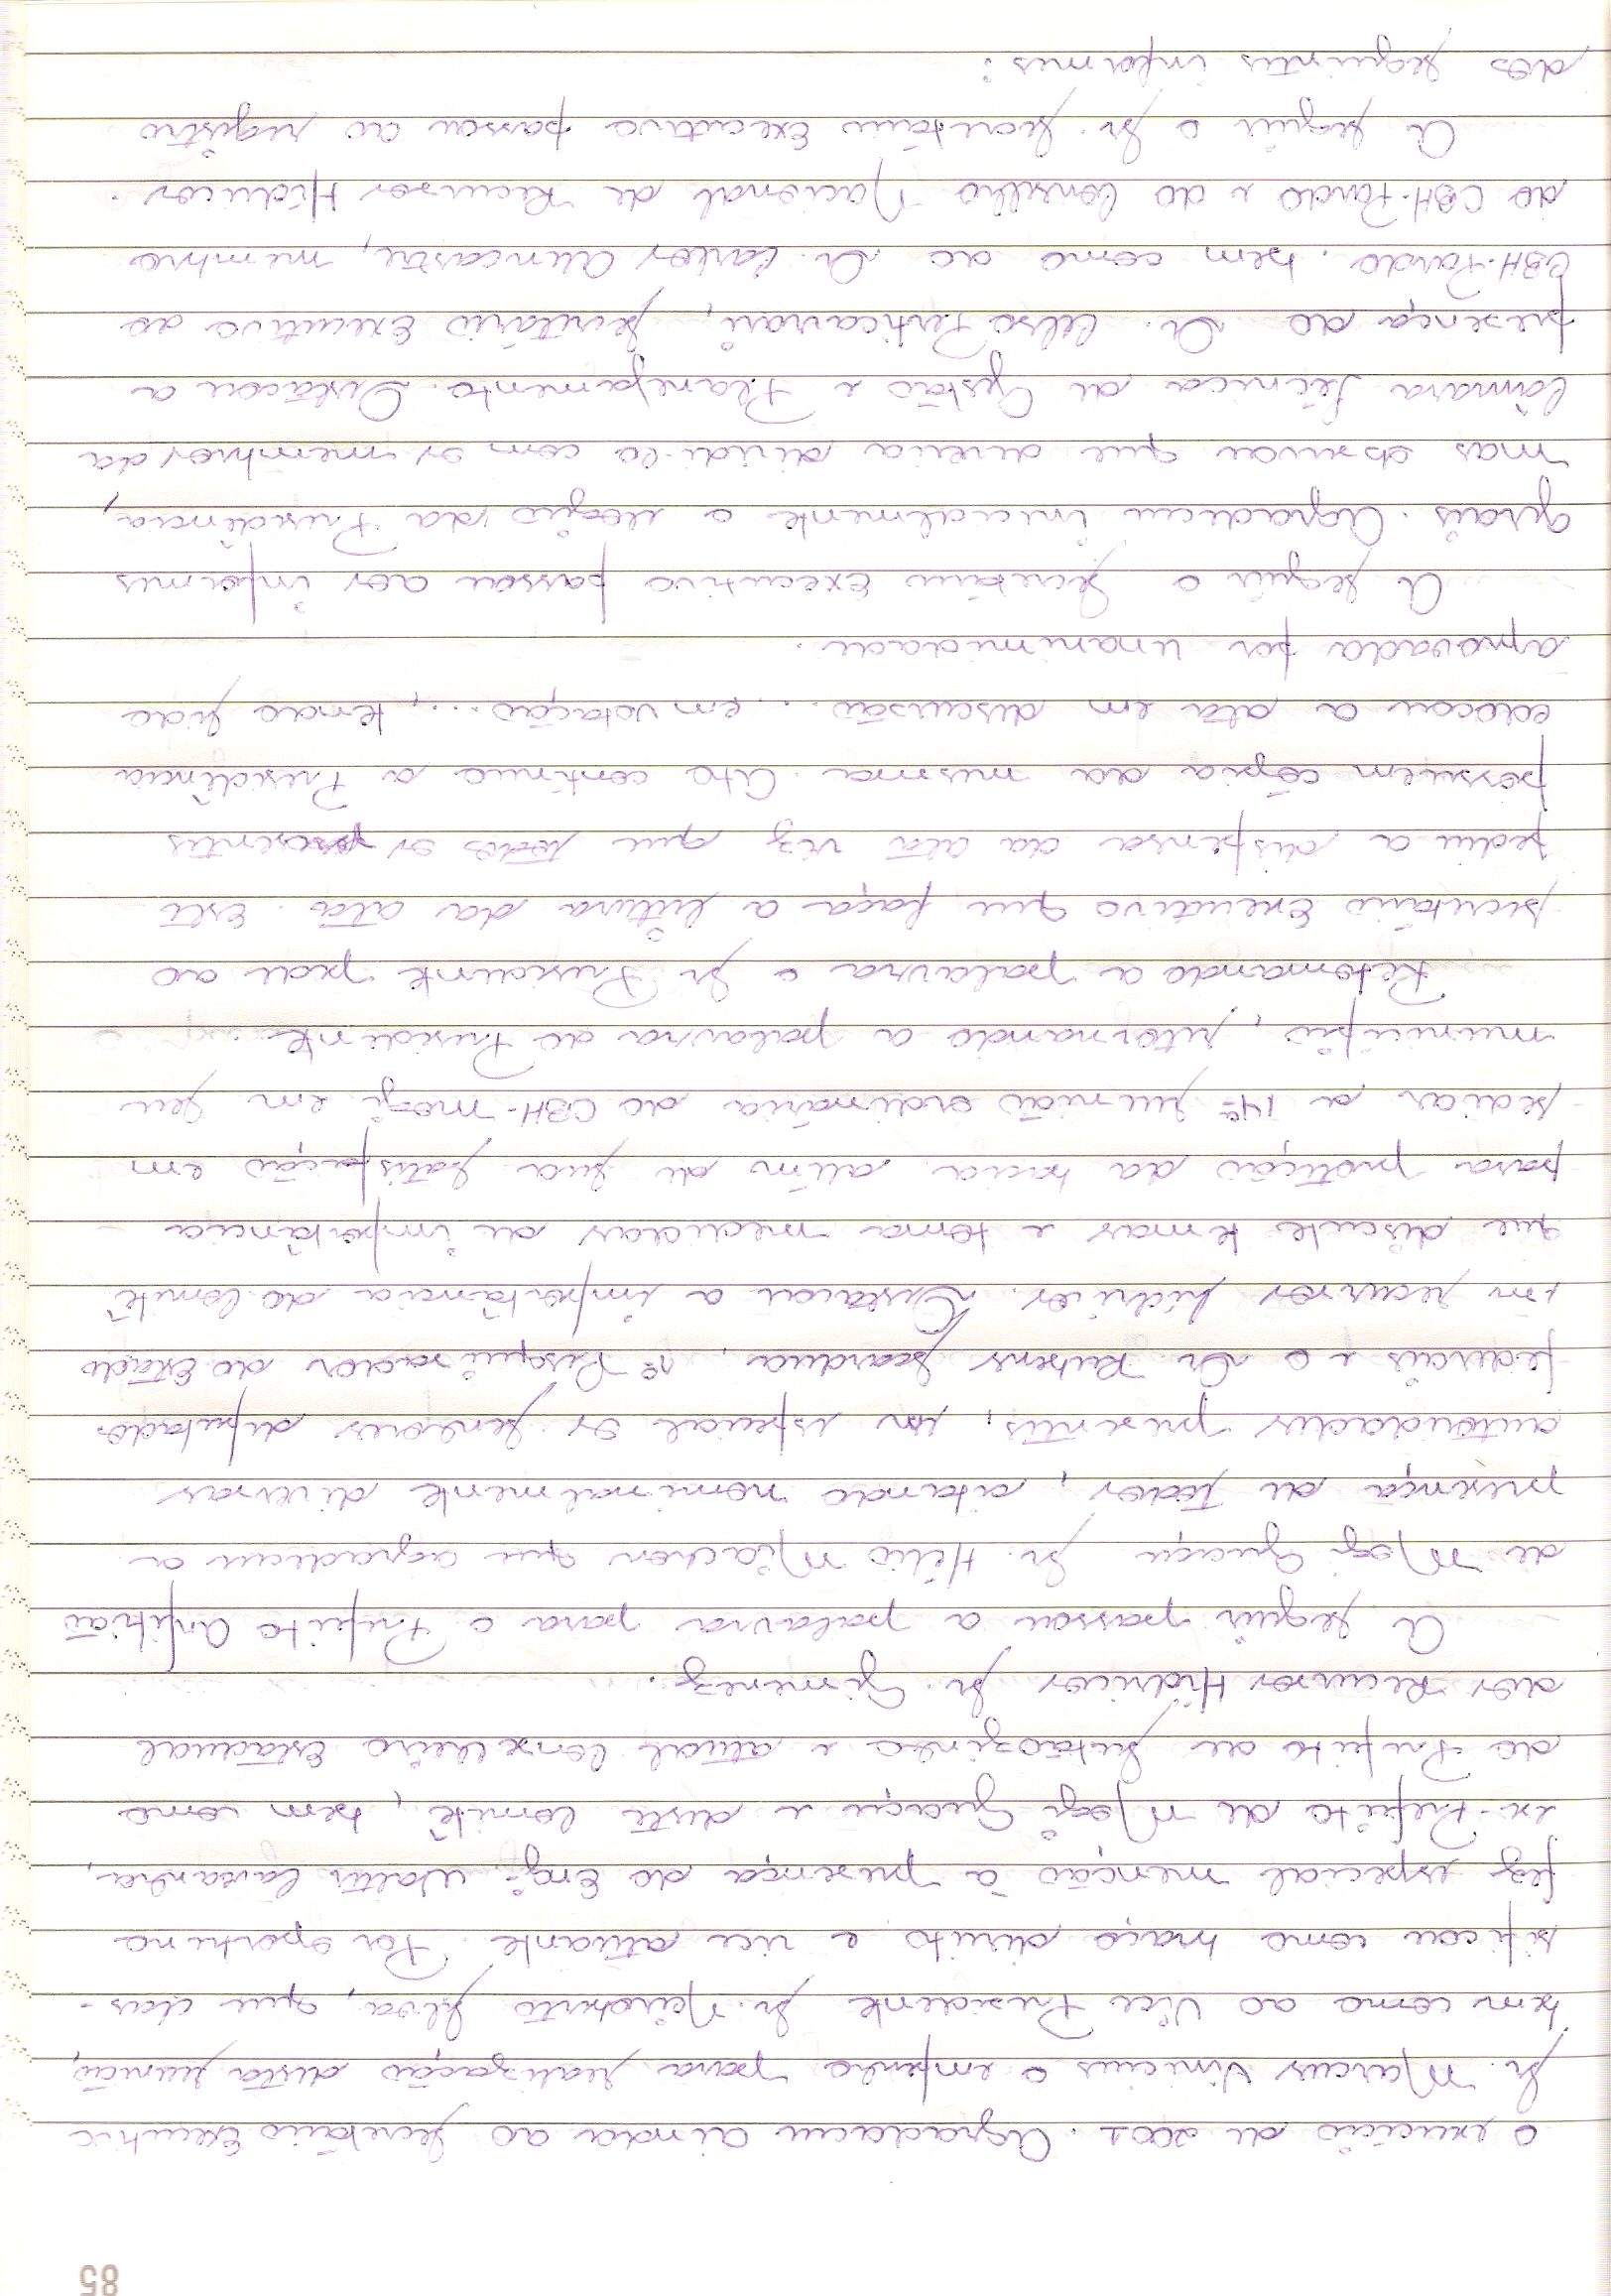 85
o exercício de 2001. Agradeceu ainda ao Secretário Executivo
Sr. Marcus Vinicius o empenho para realização desta reunião,
bem como ao Vice Presidente Sr. Neiroberto Silva, que clas-
sificou como braço direito e vice atuante. Por oportuno
fez especial menção à presença do Engº Walter Caveanha,
ex-Prefeito de Mogi Guaçu e deste Comitê, bem como
do Prefeito de Sertãozinho e atual Conselheiro Estadual
dos Recursos Hídricos Sr. Gimenez.
A seguir passou a palavra para o Prefeito Anfitrião
de Mogi Guaçu Sr. Hélio Miachon que agradeceu a
presença de todos, citando nominalmente diversas
autoridades presentes, em especial os senhores deputados
federais e o Dr. Rubens Scardua, 1º Pesquisador do Estado
em recursos hídricos. Destacou a importância do Comitê
que discute temas e toma medidas de importância
para proteção da bacia além de sua satisfação em
sediar a 14ª reunião ordinária do CBH-Mogi em seu
município, retornando a palavra ao Presidente.
Retomando a palavra o Sr. Presidente pede ao
Secretário Executivo que faça a leitura da ata. Este
pediu a dispensa da ata vez que todos os presentes
possuem cópia da mesma. Ato contínuo a Presidência
colocou a ata em discussão... em votação..., tendo sido
aprovada por unanimidade.
A seguir o Secretário Executivo passou aos informes
gerais. Agradeceu inicialmente o elogio da Presidência,
mas observou que deveria dividi-lo com os membros da
Câmara Técnica de Gestão e Planejamento. Destacou a
presença do Dr. Celso Perticarrari, Secretário Executivo do
CBH-Pardo. bem como ao Dr. Carlos Alencastre, membro
do CBH-Pardo e do Conselho Nacional de Recursos Hídricos.
A seguir o Sr. Secretário Executivo passou ao registro
dos seguintes informes: